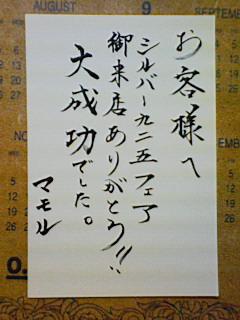 お客様へ
シルバー九二五フェア
御来店ありがとう!!
大成功でした。
マモル
AUGUST
9
SEPTEMBER